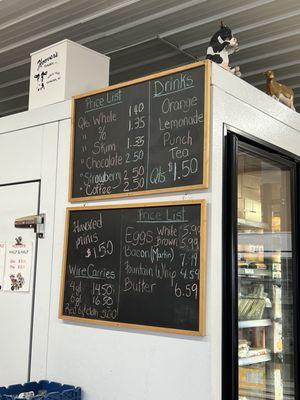 Hoover's
Price List
Qts. Whole 1.40
" % 1.35
" Skim 1.35
" Chocolate 2.50
" Strawberry 2.50
" Coffee 2.50
Drinks
Orange
Lemonade
Punch
Tea
Qts $1.50
Flavored
minis
$1.50
Wire Carries
4 qt 14.50
6 qt 16.50
Price List
Eggs White 5.99
Brown 5.99
Bacon (Martin) 7.19
Mountain Whip 4.59
Butter 6.59